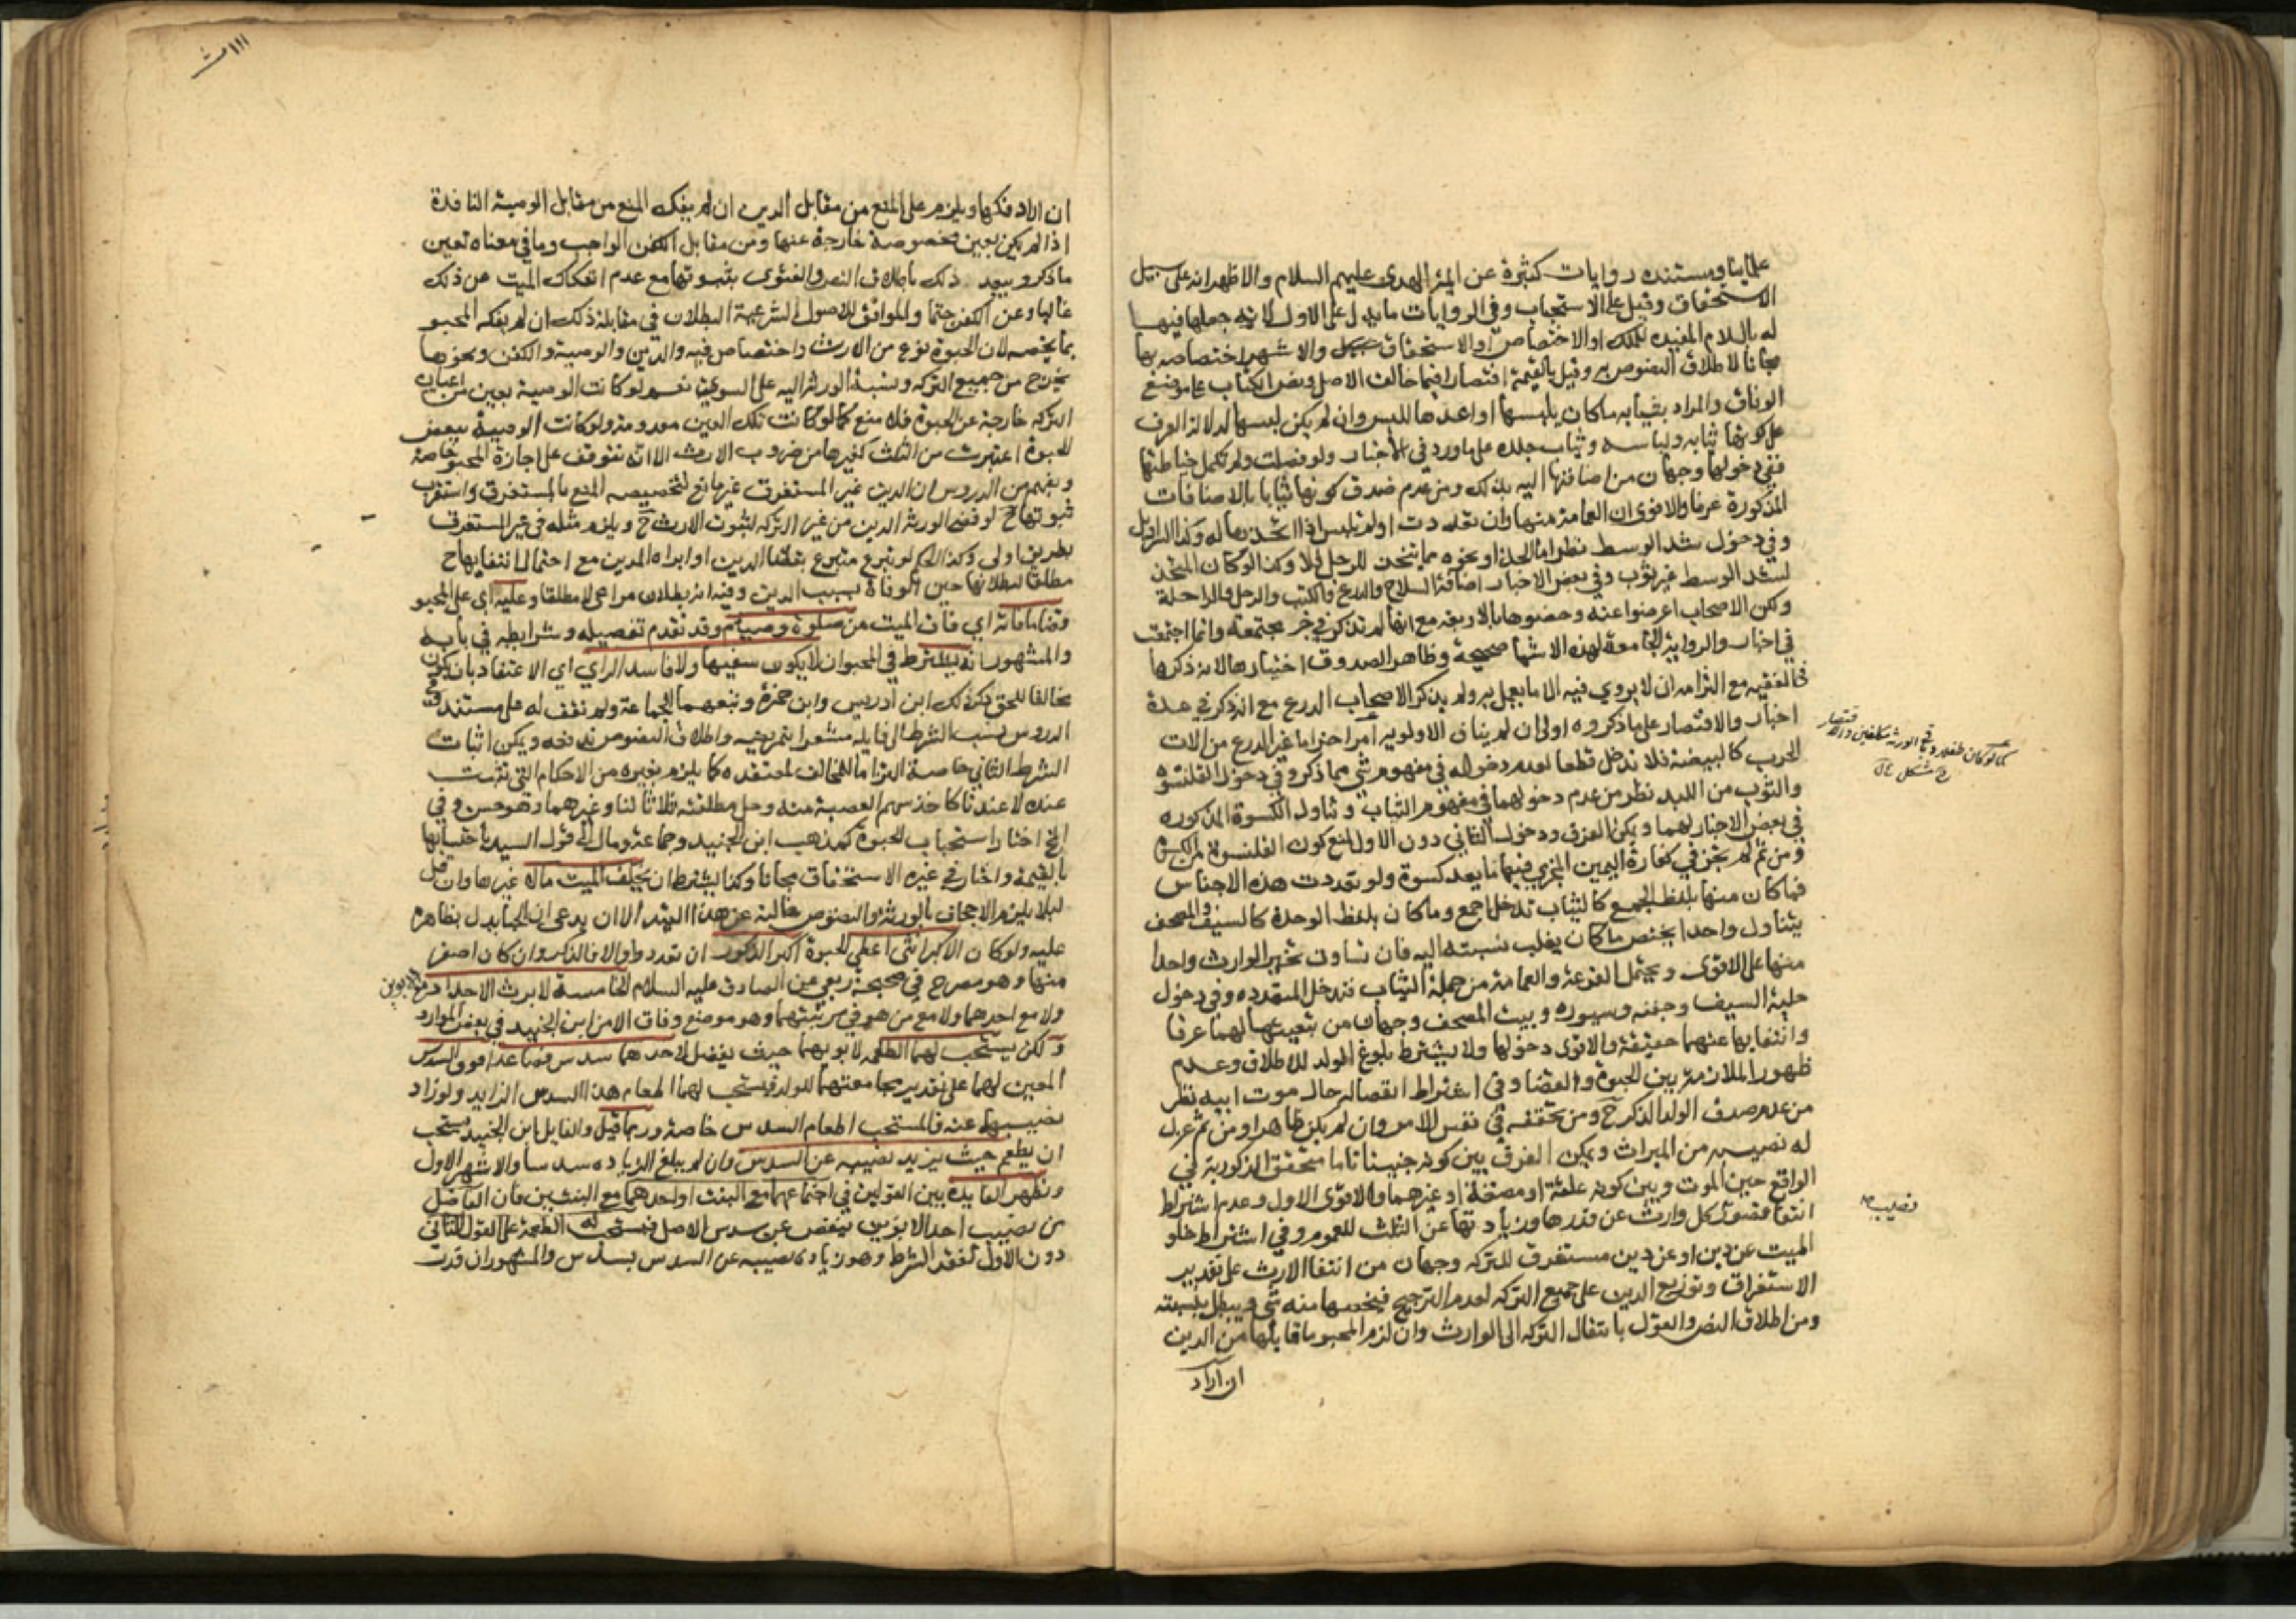 علمائنا ومستنده روايات كثيرة عن ائمة الهدى عليهم السلام والاظهر انه على سبيل
الاستحقاق وقيل على الاستحباب وفي الروايات ما يدل على الاول لانه جعلها فيها
له باللام المفيده للملك او الاختصاص او الاستحقاق والاشهر اختصاصه بها
مجانا لاطلاق النصوص به وقيل بالقيمة اقتصارا فيما خالف الاصل ونص الكتاب على موضع
الوفاق والمراد بثيابه ما كان يلبسها او اعدها للبس وان لم يكن لبسها لدلالة العرف
على كونها ثيابه ولباسه وثياب جلده على ما ورد في الاخبار ولو فصلت ولم تكمل خياطتها
ففي دخولها وجهان من اضافتها اليه بذلك ومن عدم صدق كونها ثيابا بالاضافات
المذكورة عرفا والاقوى ان العمامة منها وان تعددت او لم تلبس اذا اتخذها له وكذا السراويل
وفي دخول شد الوسط نظر اما الحذا ونحوه مما يتخذ للرجل فلا وكذا لو كان المتخذ
لشد الوسط غير ثوب وفي بعض الاخبار اضافة السلاح والدرع والكتب والرحل والراحلة
ولكن الاصحاب اعرضوا عنه وخصوها بالاربعة مع انها لم تذكر في خبر مجتمعة وانما اجتمعت
في اخبار والرواية الجامعة لهذه الاشيا صحيحة وظاهر الصدوق اختيارها لانه ذكرها
في الفقيه مع التزامه ان لا يروي فيه الا ما يعمل به ولم يذكر الاصحاب الدرع مع انه ذكر في عدة
اخبار والاقتصار على ما ذكروه اولى ان لم يناف الاولوية امر اخر اما غير الدرع من الات
الحرب كالبيضة فلا تدخل قطعا لعدم دخوله في مفهوم شي مما ذكر وفي دخول القلنسوة
والثوب من اللبد نظر من عدم دخولهما في مفهوم الثياب وتناول الكسوة المذكوره
في بعض الاخبار لهما ويمكن الفرق ودخول الثاني دون الاول لمنع كون القلنسوة من الكسوة
ومن ثم لم يجز في كفارة اليمين المجزي فيها ما يعد كسوة ولو تعددت هذه الاجناس
فما كان منها بلفظ الجمع كالثياب تدخل اجمع وما كان بلفظ الوحدة كالسيف والمصحف
يتناول واحدا يختص ما كان يغلب نسبته اليه فان تساوت تخير الوارث واحدا
منها على الاقوى ويحتمل القرعة والعمامة من جملة الثياب فتدخل المتعدده وفي دخول
حلية السيف وجفنه وسيوره وبيت المصحف وجهان من تبعيتها لهما عرفا
وانتفائها عنهما حقيقة والاقوى دخولها ولا يشترط بلوغ الولد للاطلاق وعدم
ظهور الملازمة بين الحبوة والقضا وفي اشتراط انفصاله حال موت ابيه نظر
من عدم صدق الولد الذكر ح ومن تحققه في نفس الامر وان لم يكن ظاهرا ومن ثم عزل
له نصيبه من الميراث ويمكن الفرق بين كونه جنينا تاما متحقق الذكورية في
الواقع حين الموت وبين كونه علقة او مضغة او غيرهما والاقوى الاول وعدم اشتراط
انتفا قصور كل وارث عن قدرها وزيادتها عن الثلث للعموم وفي اشتراط خلو
الميت عن دين او عن دين مستغرق للتركه وجهان من انتفا الارث على تقدير
الاستغراق وتوزيع الدين على جميع التركه لعدم الترجيح فيخصها منه شي ويبطل بنسبته
ومن اطلاق النص والقول بانتقال التركه الى الوارث وان لزم المحبو ما قابلها من الدين
ان اراد
كما لو كان طفلا وباقي الورثة مكلفين
نصيب
ان اراد فكها ويلزم على المنع من مقابل الدين ان لم يفكه المنع من مقابل الوصية النافذة
اذا لم يكن بعين مخصوصة خارجة عنها ومن مقابل الكفن الواجب وما في معناه لعين
ما ذكر ويبعد ذلك باطلاق النص والفتوى بثبوتها مع عدم انفكاك الميت عن ذلك
غالبا وعن الكفن حتما والموافق للاصول الشرعية البطلان في مقابلة ذلك ان لم يفكه المحبو
بما يخصه لان الحبوة نوع من الارث واختصاص فيه والدين والوصية والكفن ونحوها
يخرج من جميع التركه ونسبة الورثة اليه على السوية نعم لو كانت الوصية بعين من اعيان
التركه خارجة عن الحبوة فلا منع كما لو كانت تلك العين معدومة ولو كانت الوصية ببعض
الحبوة اعتبرت من الثلث كغيرها من ضروب الارث الا انه تتوقف على اجازة المحبو خاصة
ويفهم من الدروس ان الدين غير المستغرق غير مانع لتخصيصه المنع بالمستغرق واستقرب
ثبوتها ح لو قضى الورثة الدين من غير التركه لثبوت الارث ح ويلزم مثله في غير المستغرق
بطريق اولى وكذا الحكم لو تبرع متبرع بقضا الدين او ابراه المدين مع احتمال انتفائها ح
مطلقا لبطلانها حين الوفاة بسبب الدين وفيه انه بطلان مراعى لا مطلقا وعليه اي على المحبو
قضاء ما فاته اي فات الميت من صلوة وصيام وقد تقدم تفصيله وشرايطه في بابه
والمشهور انه يشترط في المحبو ان لا يكون سفيها ولا فاسد الراي اي الاعتقاد بان يكون
مخالفا للحق ذكر ذلك ابن ادريس وابن حمزة وتبعهما الجماعة ولم نقف له على مستند وفي
الدروس نسب الشرط الى قايله مشعرا بتمريضه واطلاق النصوص تدفعه ويمكن اثبات
الشرط الثاني خاصة التزاما للمخالف لمعتقده كما يلزم بغيره من الاحكام التي تثبت
عنده لا عندنا كاخذ سهم العصبة منه وحل مطلقته ثلاثا لنا وغيرهما وهو حسن وفي
اختار استحباب الحبوة كمذهب ابن الجنيد وجماعة ومال الى قول السيد باحتسابها
بالقيمة واختار في غيره الاستحقاق مجانا وكذا يشترط ان يخلف الميت مالا غيرها وان قل
لئلا يلزم الاجحاف بالورثة والنصوص خالية عن هذا القيد الا ان يدعى ان الحبا يدل بظاهره
عليه ولو كان الاكبر انثى اعطي الحبوة اكبر الذكور ان تعددوا والا فالذكر وان كان اصغر
منها وهو مصرح في صحيحة ربعي عن الصادق عليه السلام الخامسة لا يرث الاجداد مع الابوين
ولا مع احدهما ولا مع من هو في مرتبتهما وهو موضع وفاق الا من ابن الجنيد في بعض الموارد
ولكن يستحب لهما الطعمة لابويهما حيث يفضل لاحدهما سدس فصاعدا فوق السدس
المعين لهما على تقدير مجامعتهما للولد فيستحب لهما اطعام هذا السدس الزايد ولو زاد
نصيبهما عنه فالمستحب اطعام السدس خاصة وربما قيل والقايل ابن الجنيد يستحب
ان يطعم حيث يزيد نصيبه عن السدس وان لم يبلغ الزياده سدسا والاشهر الاول
وتظهر الفايده بين القولين في اجتماعهما مع البنت او احدهما مع البنتين فان الفاضل
من نصيب احد الابوين ينقص عن سدس الاصل فيستحب له الطعمة على القول الثاني
دون الاول لفقد الشرط وهو زيادة نصيبه عن السدس بسدس والمشهور ان قدرت